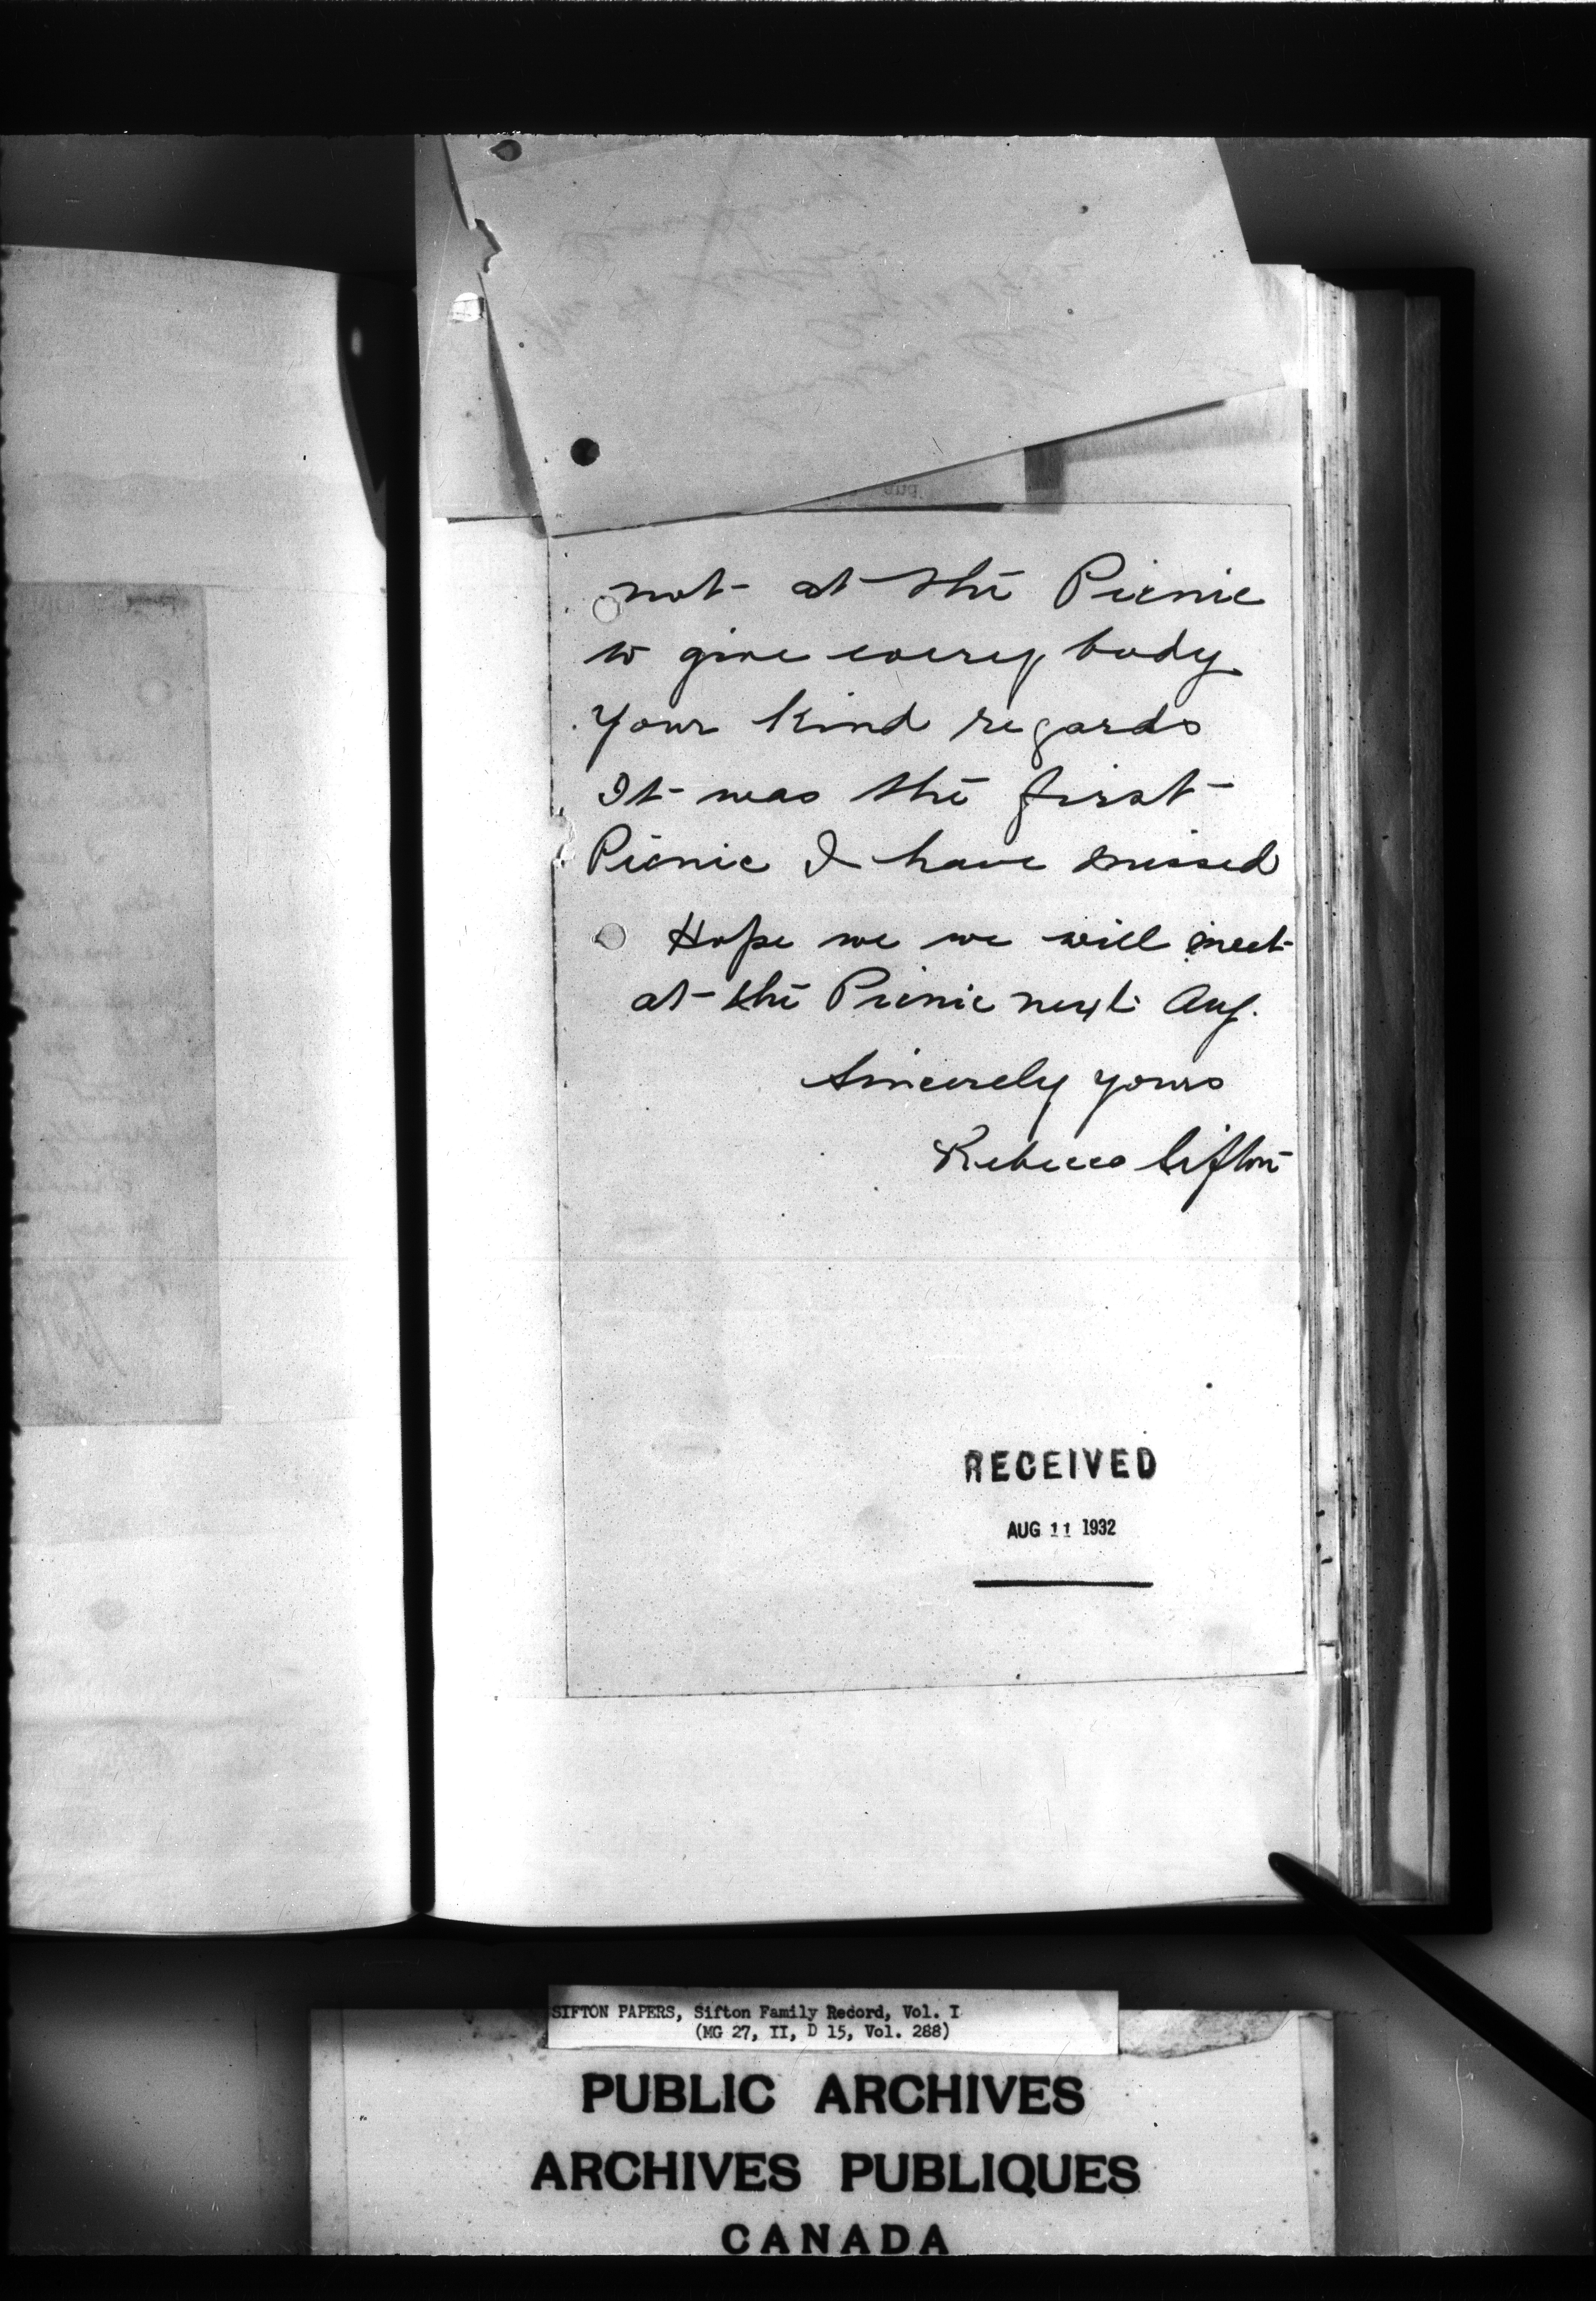 not at the Picnic
to give every body
your kind regards
It was the first
Picnic I have missed
Hope we we will meet
at the Picnic next Aug.
Sincerely yours
Rebecca Sifton
RECEIVED
AUG 11 1932
SIFTON PAPERS, Sifton Family Record, Vol. I
(MG 27, II, D 15, Vol. 288)
PUBLIC ARCHIVES
ARCHIVES PUBLIQUES
CANADA